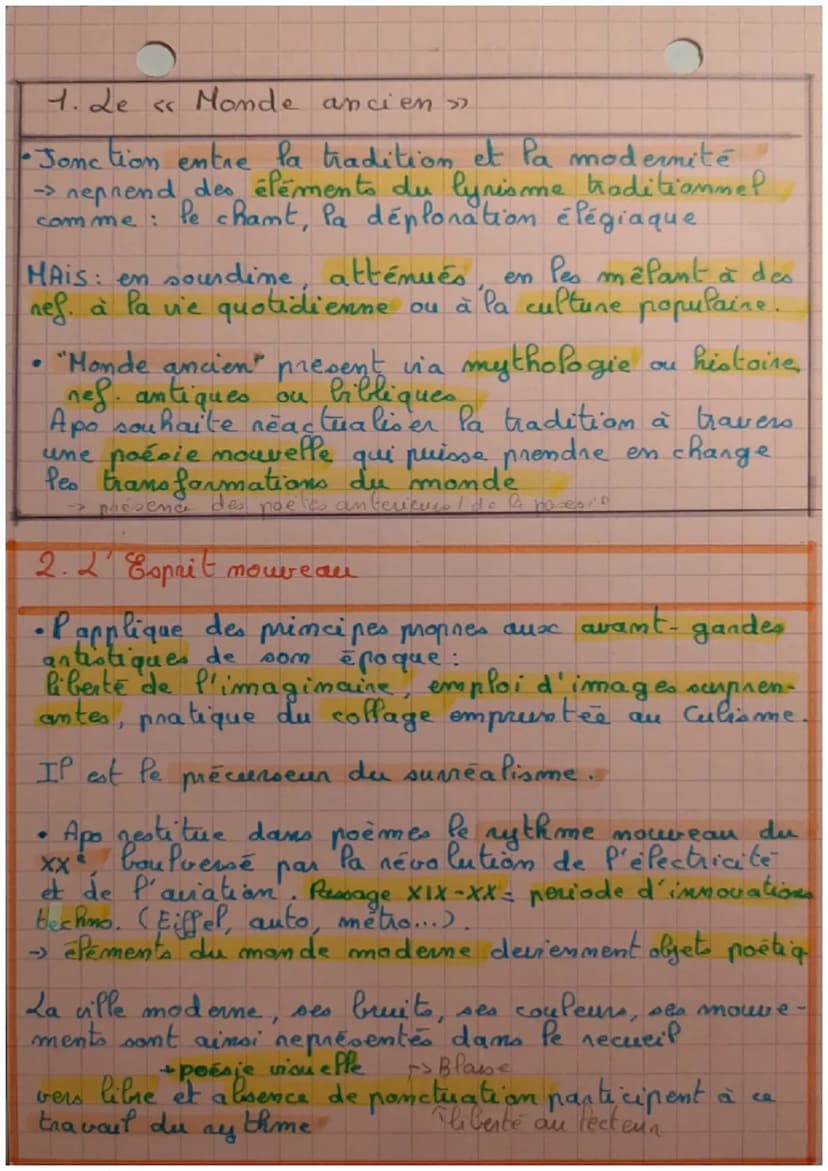 1. Le << Monde ancien >>
• Jonction entre la tradition et la modernité
-> reprend des éléments du lyrisme traditionnel
comme : le chant, la déploration élégiaque
MAIS : en sourdine, atténués, en les mêlant à des
ref. à la vie quotidienne ou à la culture populaire.
• "Monde ancien" présent via mythologie ou histoire,
ref. antiques ou bibliques
Apo souhaite réactualiser la tradition à travers
une poésie nouvelle qui puisse prendre en charge
les transformations du monde
-> présence des poètes antérieurs / de la
2. L'Esprit nouveau
• Il applique des principes propres aux avant-gardes
artistiques de son époque :
liberté de l'imaginaire, emploi d'images surpren-
antes, pratique du collage empruntée au Cubisme.
Il est le précurseur du surréalisme.
• Apo restitue dans poèmes le rythme nouveau du
XXe, bouleversé par la révolution de l'électricité
et de l'aviation. Passage XIX-XX = période d'innovations
techno. (Eiffel, auto, métro...).
-> éléments du monde moderne deviennent objets poétiq
La ville moderne, ses bruits, ses couleurs, ses mouve-
ments sont ainsi représentés dans le recueil
+ poésie visuelle -> Blaise
vers libre et absence de ponctuation participent à ce
travail du rythme liberté au lecteur